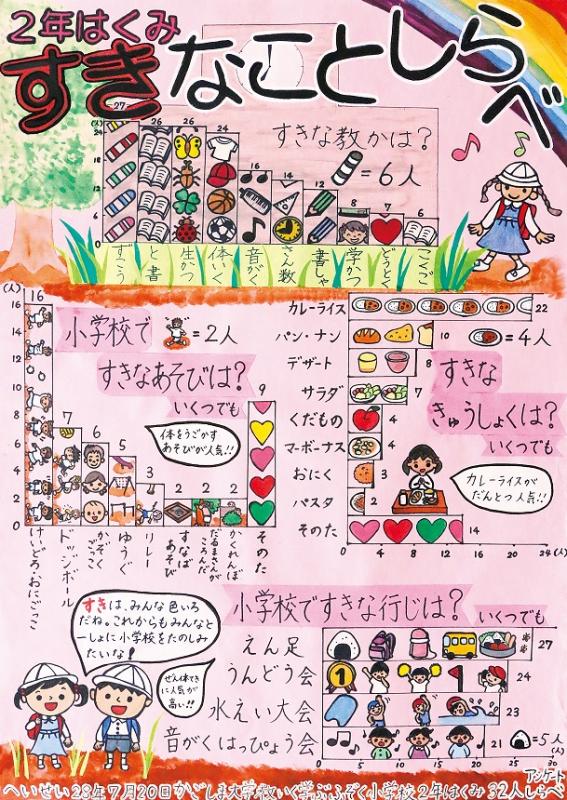 2年はくみ
すきなことしらべ
すきな教かは?
=6人
(人)
24
18
12
6
0
27
26
26
24
16
14
12
8
7
6
ずこう
と書
生かつ
体いく
音がく
さん数
書しゃ
学かつ
どうとく
こくご
小学校で
=2人
すきなあそびは?
いくつでも
体をうごかす
あそびが人気!!
(人)
16
14
12
10
8
6
4
2
0
16
7
6
5
3
2
2
2
9
けいどろ・おにごっこ
ドッジボール
かぞごっこ
ゆうぐ
リレー
すなばあそび
だるまさんがころんだ
かくれんぼ
そのた
すきな
きゅうしょくは?
いくつでも
=4人
カレーライス 22
パン・ナン 10
デザート 8
サラダ 7
くだもの 4
マーボーナス 4
おにく 3
パスタ 2
そのた 14
0 4 8 12 16 20 24(人)
カレーライスが
だんとつ人気!!
小学校ですきな行じは?
いくつでも
えん足 27
うんどう会 24
水えい大会 23
音がくはっぴょう会 21
=5人
(人)
すきは、みんな色いろ
だね。これからもみんなと
一しょに小学校をたのしみ
たいな!
ぜん体てき
に人気が
高い!!
アンケート
へいせい28年7月20日かごしま大学教いく学ぶふぞく小学校2年はくみ32人しらべ